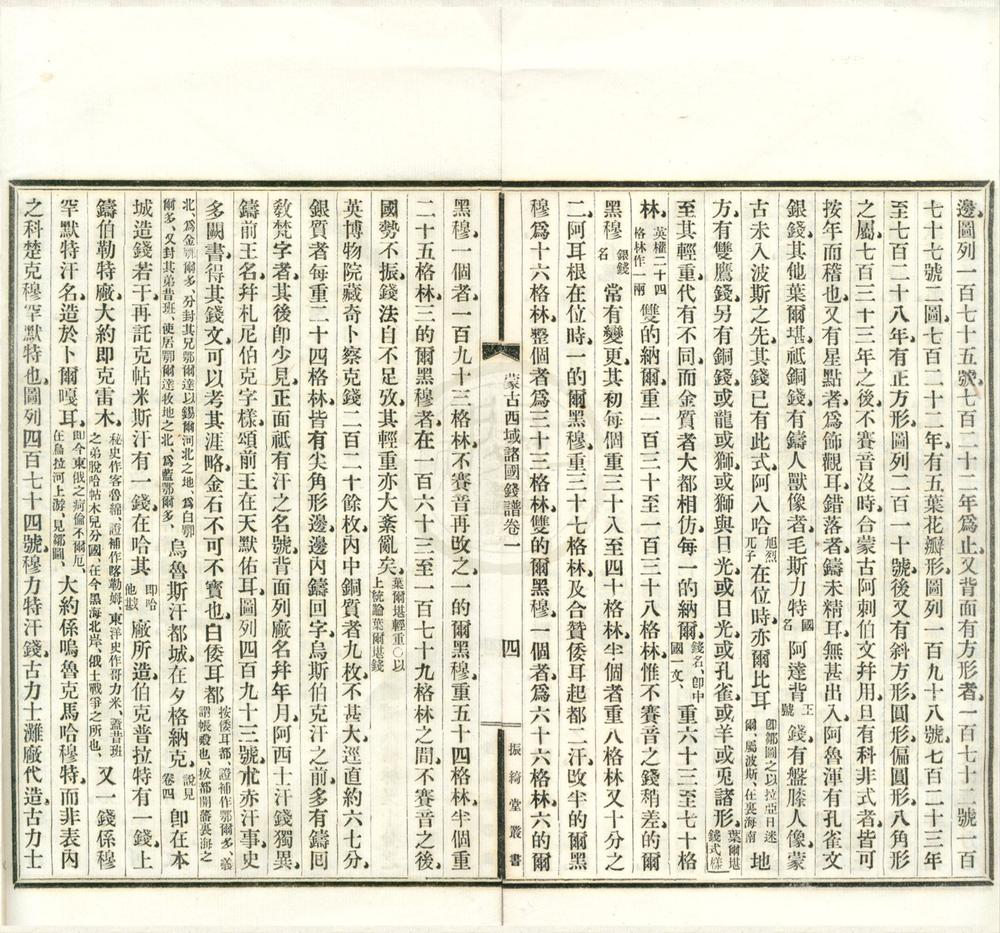 邊圖列一百七十五號七百二十二年爲止又背面有方形者一百七十二號一百
七十七號二圖七百二十二年有五葉花瓣形圖列一百九十八號七百二十三年
至七百二十八年有正方形圖列二百一十號後又有斜方形圓形偏圓形八角形
之屬七百三十三年之後不賽音沒時合蒙古阿刺伯文幷用且有科非式者皆可
按年而稽也又有星點者爲飾觀耳錯落者鑄未精耳無甚出入阿魯渾有孔雀文
銀錢其他葉爾堪祗銅錢有鑄人獸像者毛斯力特國名阿達背王號錢有盤膝人像蒙
古未入波斯之先其錢已有此式阿八哈旭烈兀子在位時亦爾比耳卽鄒圖之以拉亞日迷爾屬波斯在裏海南地
方有雙鷹錢另有銅錢或龍或獅或獅與日光或日光或孔雀或羊或兎諸形葉爾堪錢式樣
至其輕重代有不同而金質者大都相仿每一的納爾錢名卽中國一文重六十三至七十格
林英權二十四格林作一兩雙的納爾重一百三十至一百三十八格林惟不賽音之錢稍差的爾
黑穆銀錢名常有變更其初每個重三十八至四十格林半個者重八格林又十分之
二阿耳根在位時一的爾黑穆重三十七格林及合贊倭耳起都二汗改半的爾黑
穆爲十六格林整個者爲三十三格林雙的爾黑穆一個者爲六十六格林六的爾
蒙古西域諸國錢譜卷一
四
振綺堂叢書
黑穆一個者一百九十三格林不賽音再改之一的爾黑穆重五十四格林半個重
二十五格林三的爾黑穆者在一百六十三至一百七十九格林之間不賽音之後
國勢不振錢法自不足攷其輕重亦大紊亂矣葉爾堪輕重○以上統論葉爾堪錢
英博物院藏奇卜察克錢二百二十餘枚內中銅質者九枚不甚大逕直約六七分
銀質者每重二十四格林皆有尖角形邊邊內鑄回字烏斯伯克汗之前多有鑄囘
敎梵字者其後卽少見正面祗有汗之名號背面列廠名幷年月阿西士汗錢獨異
鑄前王名幷札尼伯克字樣頌前王在天默佑耳圖列四百九十三號朮赤汗事史
多闕書得其錢文可以考其涯略金石不可不寶也白倭耳都按倭耳都證補作鄂爾多義謂帳殿也拔都開藩裏海之
北爲金鄂爾多分封其兄鄂爾達以錫爾河北之地爲白鄂爾多又封其弟昔班使居鄂爾達牧地之北爲藍鄂爾多烏魯斯汗都城在夕格納克說見卷四卽在本
城造錢若干再託克帖米斯汗有一錢在哈其卽哈他戡廠所造伯克普拉特有一錢上
鑄伯勒特廠大約即克雷木秘史作客魯綿證補作喀勒姆東洋史作哥力米蓋昔班之弟脫哈帖木兒分國在今黑海北岸俄士戰爭之所也又一錢係穆
罕默特汗名造於卜爾嘎耳即今東俄之病倫不爾厄在烏拉河上游見鄒圖大約係嗚魯克馬哈穆特而非表內
之科楚克穆罕默特也圖列四百七十四號穆力特汗錢古力士灘廠代造古力士